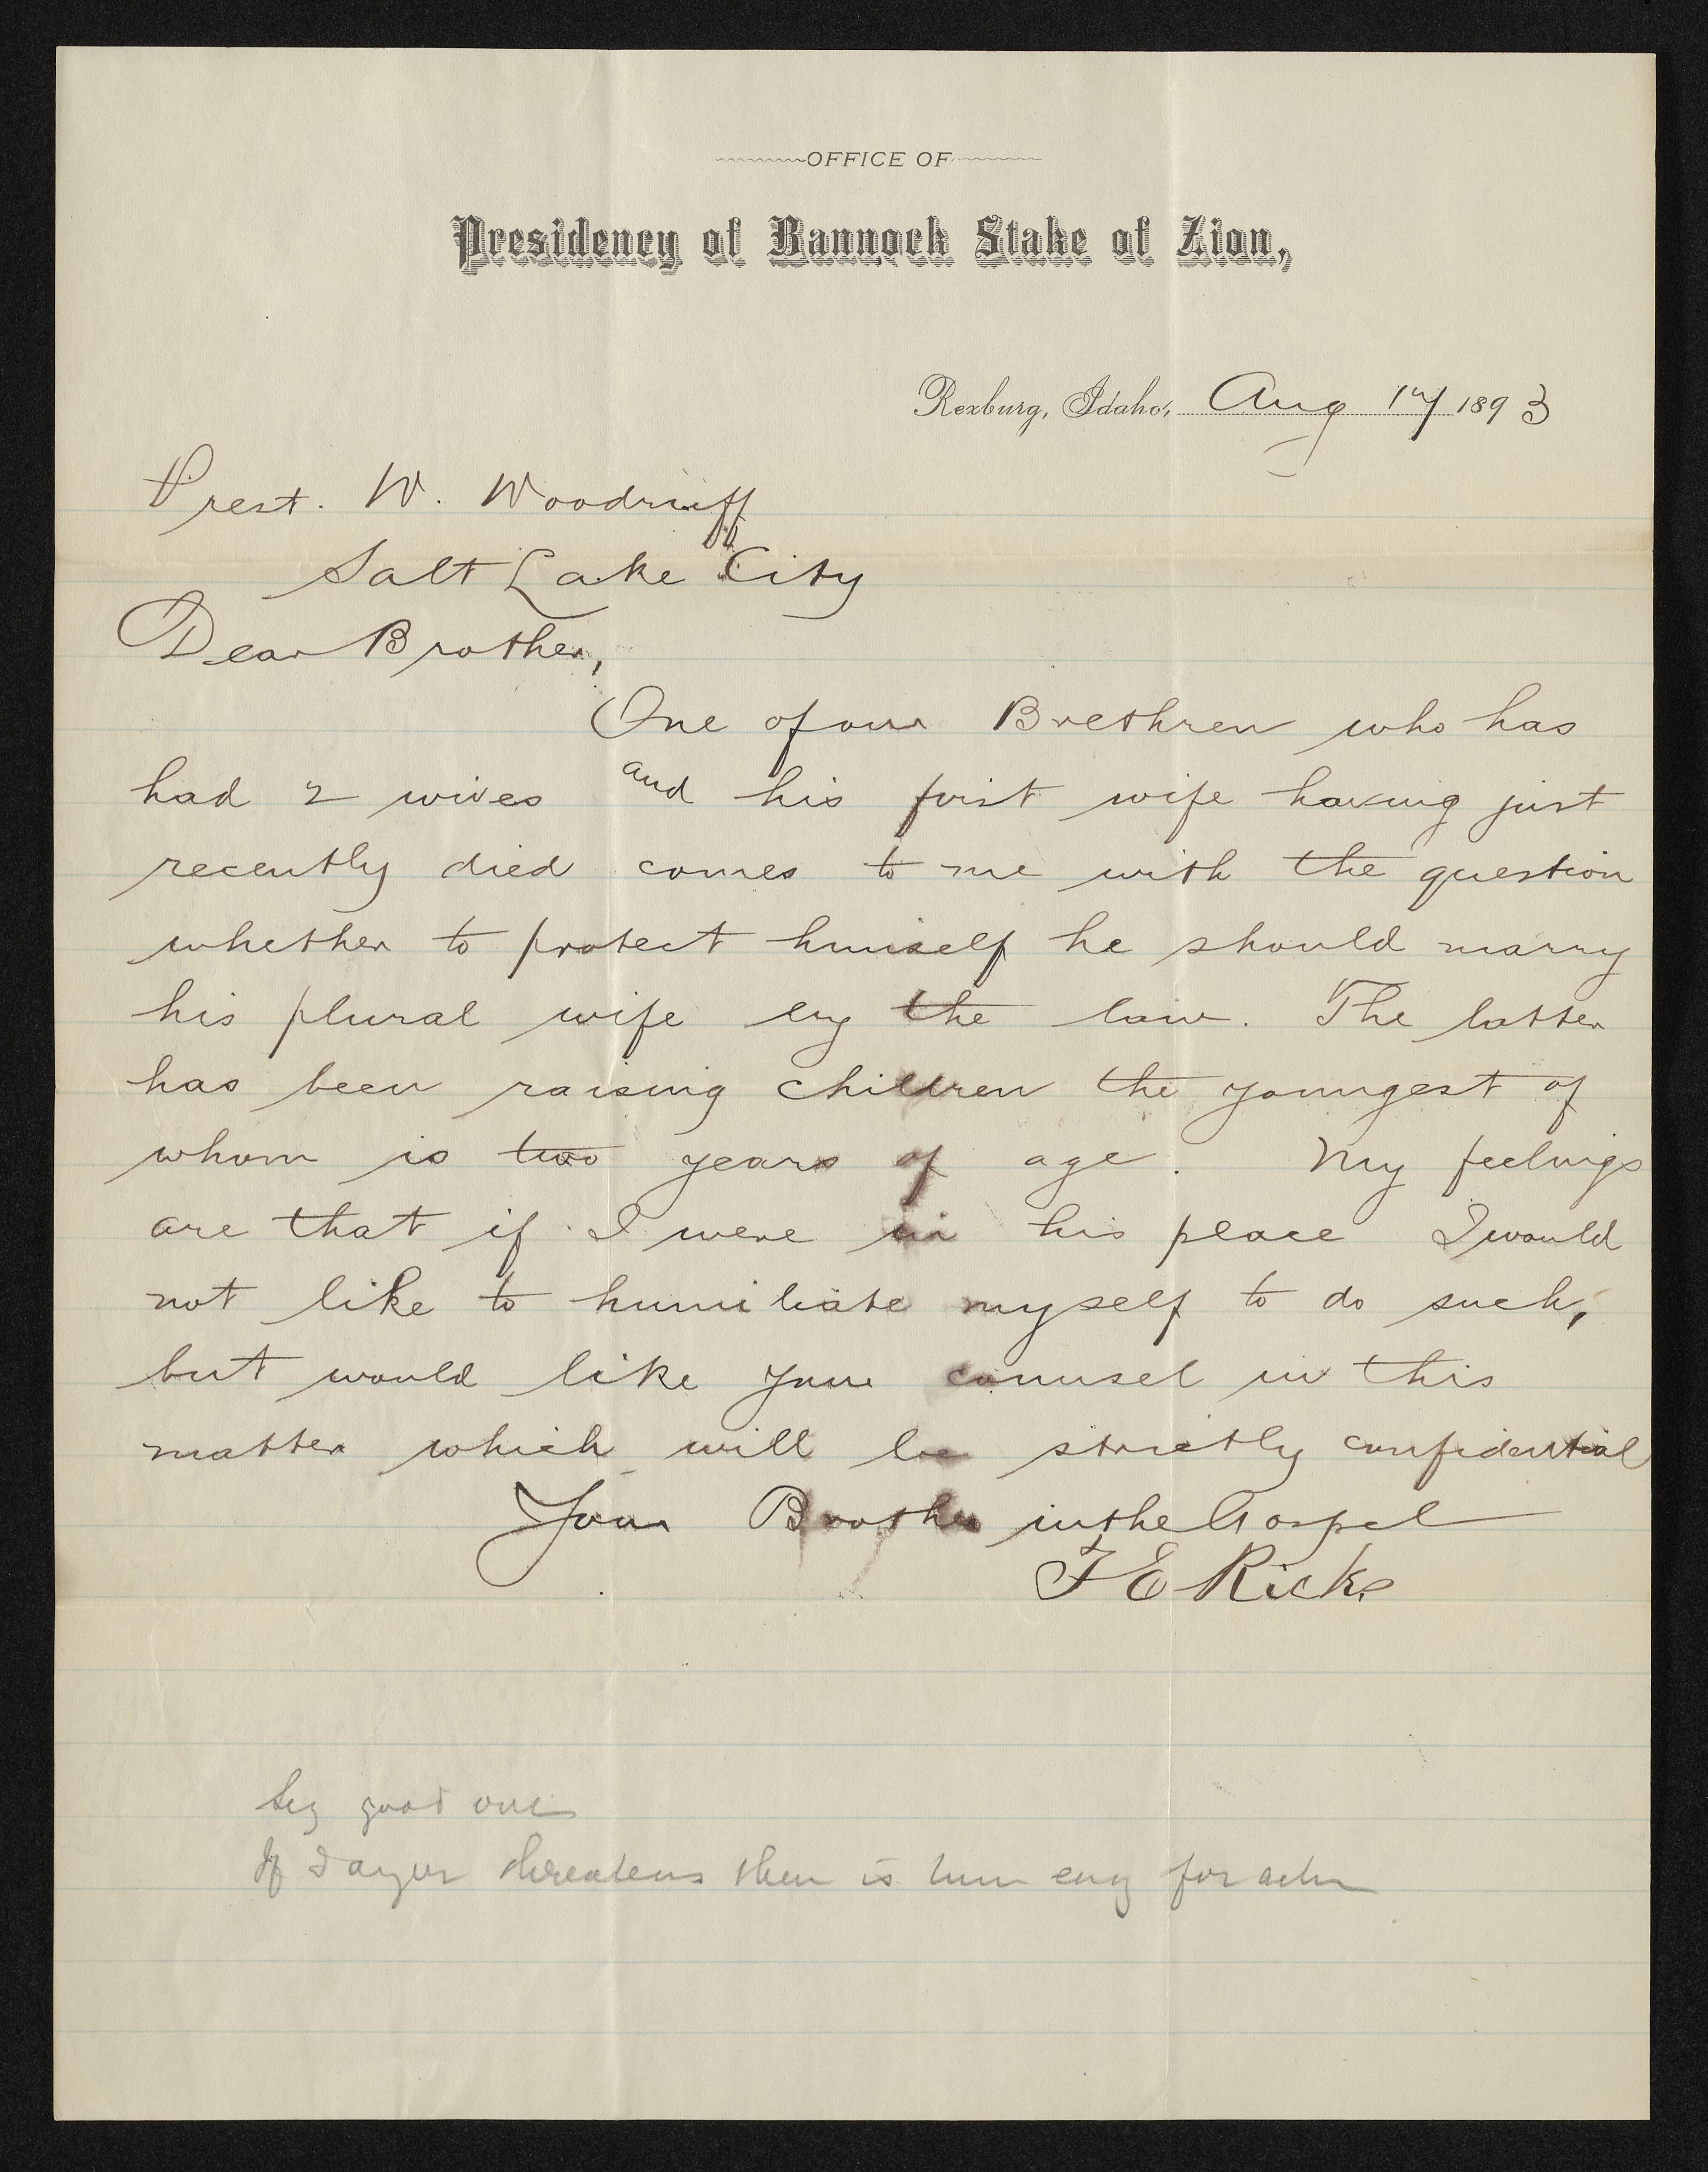 OFFICE OF
Presidency of Bannock Stake of Zion,
Rexburg, Idaho, Aug 17 1893
Prest. W. Woodruff
Salt Lake City
Dear Brother,
One of our Brethren who has
had 2 wives and his first wife having just
recently died comes to me with the question
whether to protect himself he should marry
his plural wife by the law. The latter
has been raising children the youngest of
whom is two years of age. My feelings
are that if I were in his place I would
not like to humiliate myself to do such,
but would like your counsel in this
matter which will be strictly confidential
Your Brother in the Gospel
T E Ricks
good one
If danger threatens there is for